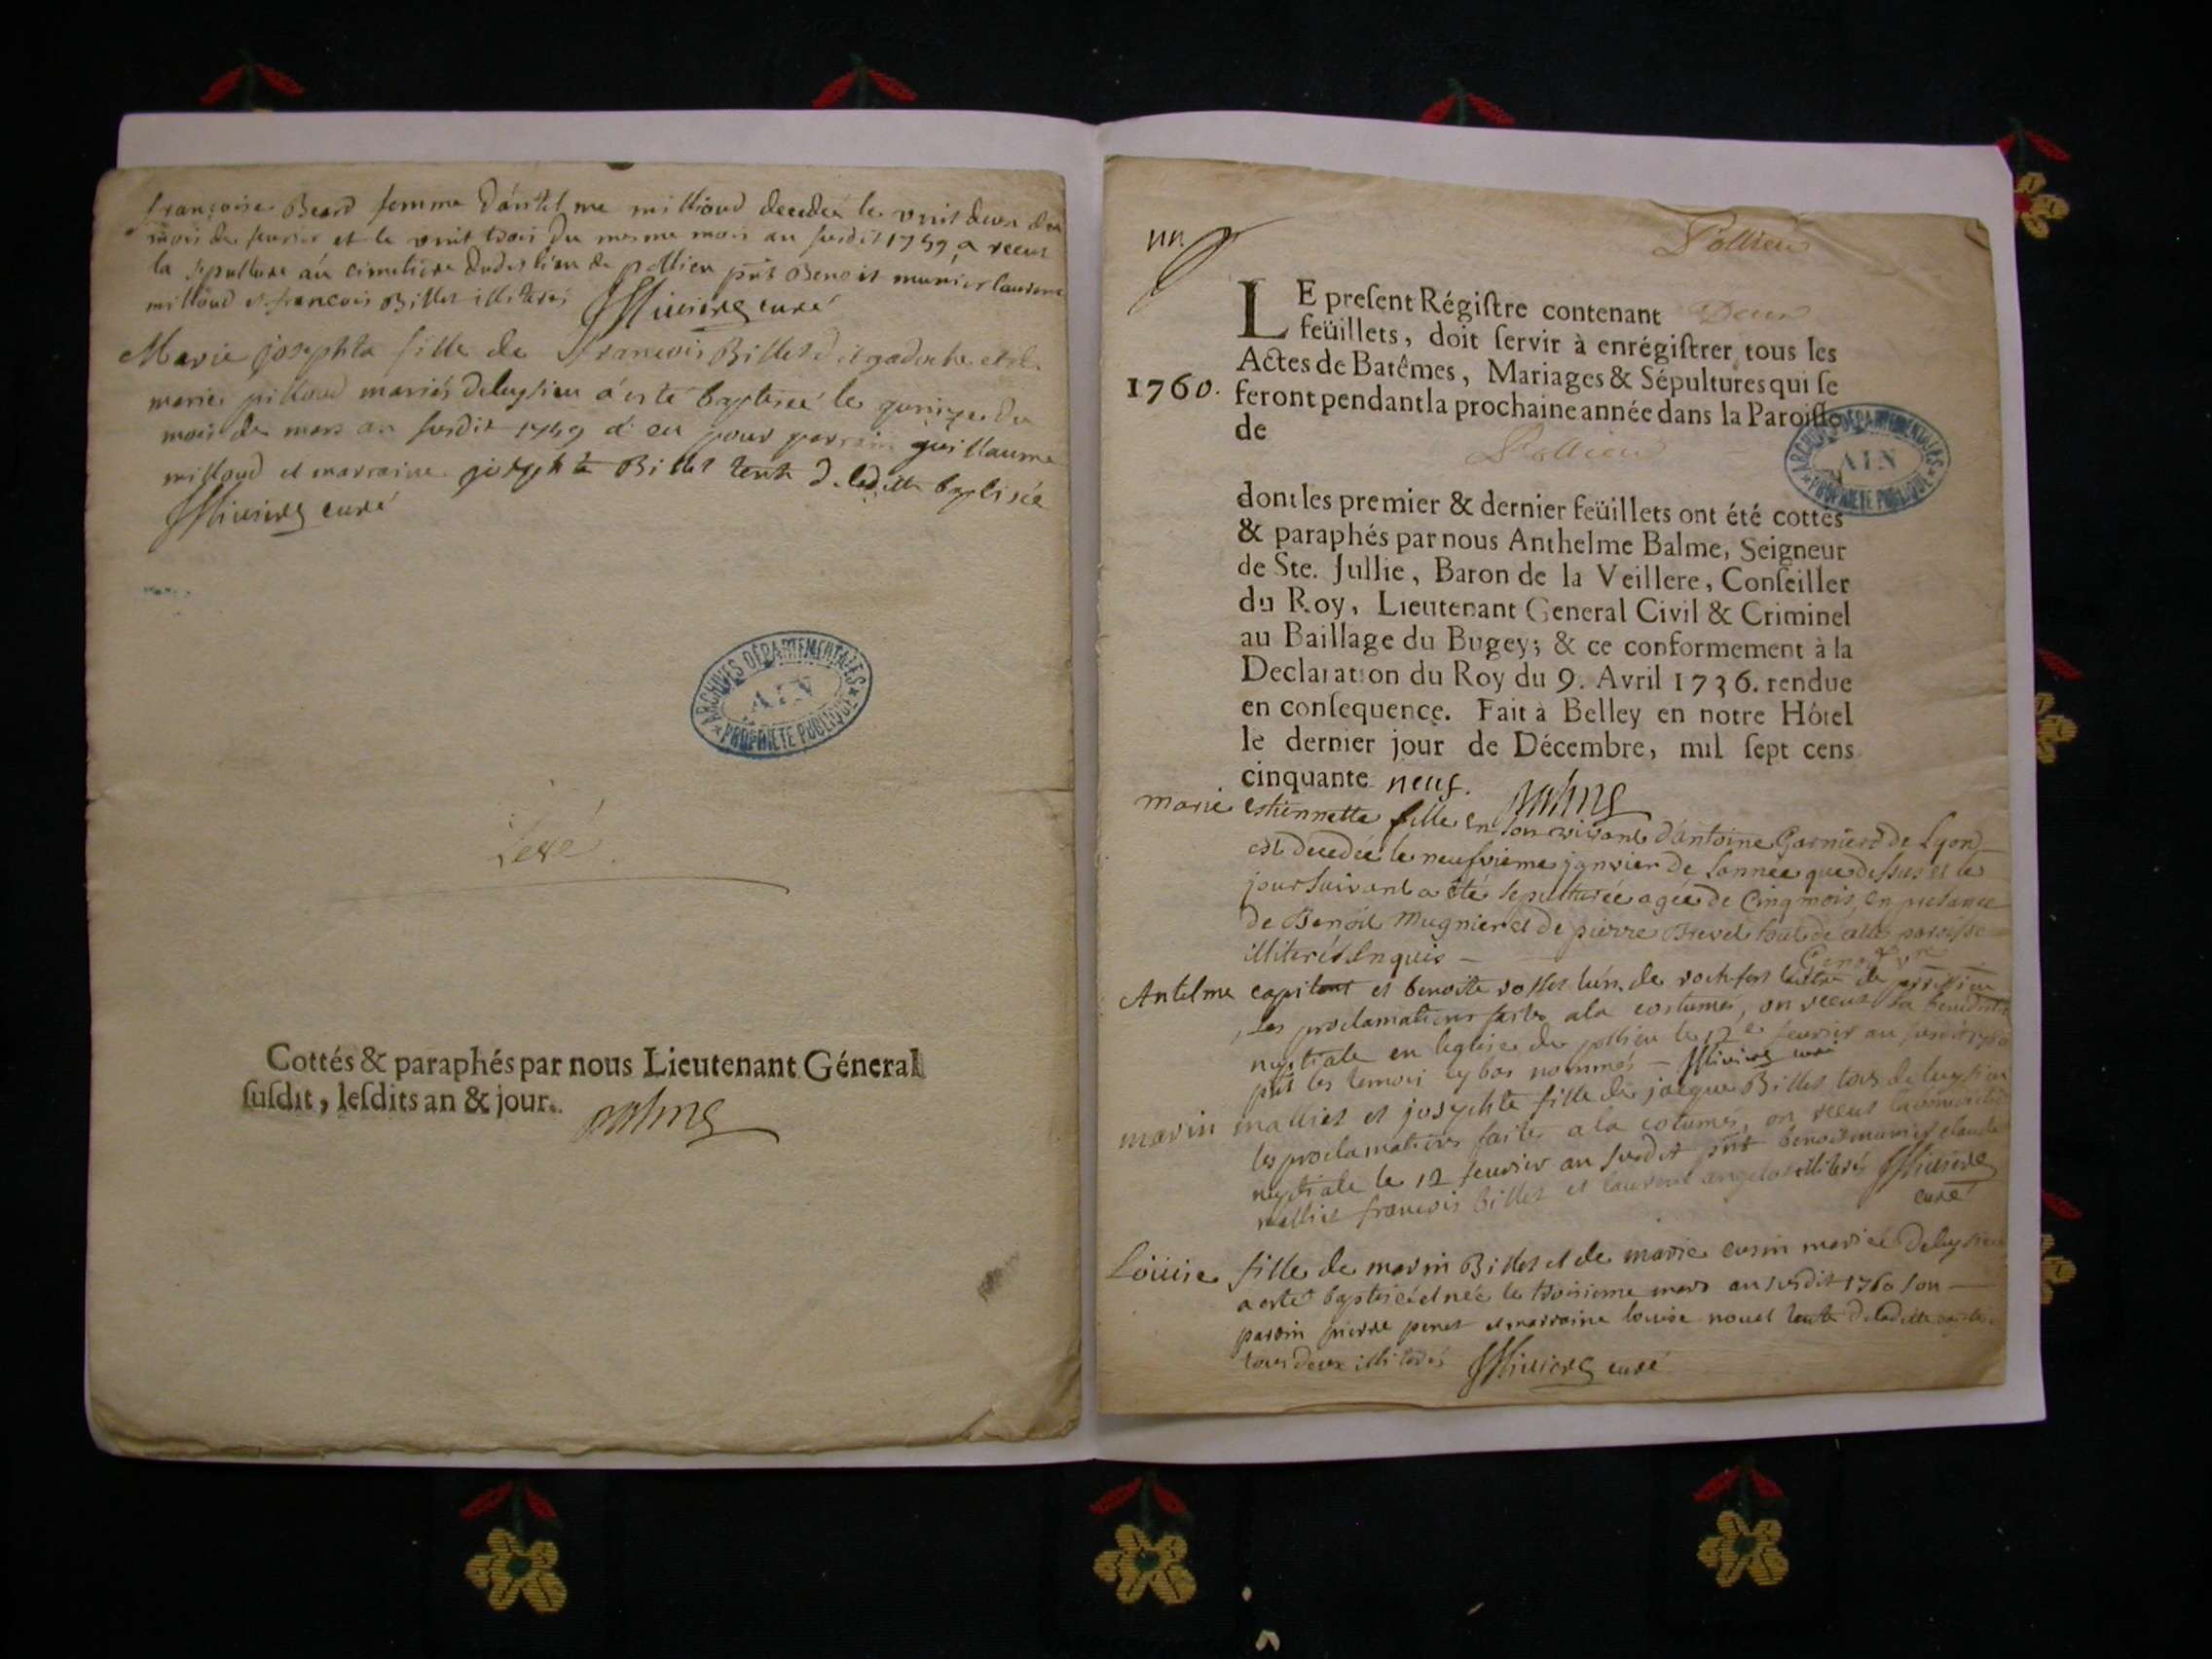 françoise Beard femme d'antelme millioud decedeé le vint deux du
mois de feurier et le vint trois du mesme mois an susdit 1759 a receu
la sepulture au cimetiere dudit lieu de pollieu pnt Benoit munier laurent
millioud et francois Billet illiterés curé
Marie josephta fille de francois Billet dit gadoche et de
marie pilloud mariés deluysieu a esté baptiseé le quinze du
mois de mars an susdit 1759 a eu pour parrain guillaume
milloud et marraine josephte Billet tente de laditte baptisée
curé
ARCHIVES DÉPARTEMENTALES
AIN
PROPRIETE PUBLIQUE
Cottés & paraphés par nous Lieutenant Géneral
susdit, lesdits an & jour. Balme
un
Pollieu
LE present Régistre contenant Deux
feüillets, doit servir à enrégistrer tous les
Actes de Batêmes, Mariages & Sépultures qui se
1760. feront pendant la prochaine année dans la Paroisse
de Pollieu
ARCHIVES DÉPARTEMENTALES
AIN
PROPRIETE PUBLIQUE
dont les premier & dernier feüillets ont été cottés
& paraphés par nous Anthelme Balme, Seigneur
de Ste. Jullie, Baron de la Veillere, Conseiller
du Roy, Lieutenant General Civil & Criminel
au Baillage du Bugey; & ce conformement à la
Declaration du Roy du 9. Avril 1736. rendue
en consequence. Fait à Belley en notre Hôtel
le dernier jour de Décembre, mil sept cens
cinquante neuf. Balme
marie estiennette fille en son vivant d'antoine Garnier de Lyon
est decedeé le neufvieme janvier de lannée que dessus et le
jour suivant a été sepulturée agée de Cinq mois, en presance
de Benoit Mugnier et de pierre Brevet tout de cette paroisse
illiterés enquis
Antelme capitant et benoite rosset lun de rochefort lautre de pollieu
les proclamations faites a la costumés, on receu la benediction
nuptiale en leglise de pollieu le 12e feurier an susdit 1760
pnt les temois cy bas nommés curé
marin malliet et josephte fille de jacque Billet tous de luysieu
les proclamations faites a la cotumés, on receu la benediction
nuptiale le 12 feurier an susdit pnt benoit munier claude
malliet francois billet et laurent illiterés
curé
Loüise fille de marin Billet et de marie cusin mariés deluysieu
a esté baptiseé et née le troisieme mars an susdit 1760 son
parin pierre penet et marraine louise nouet tente de laditte
tous deux illiterés curé